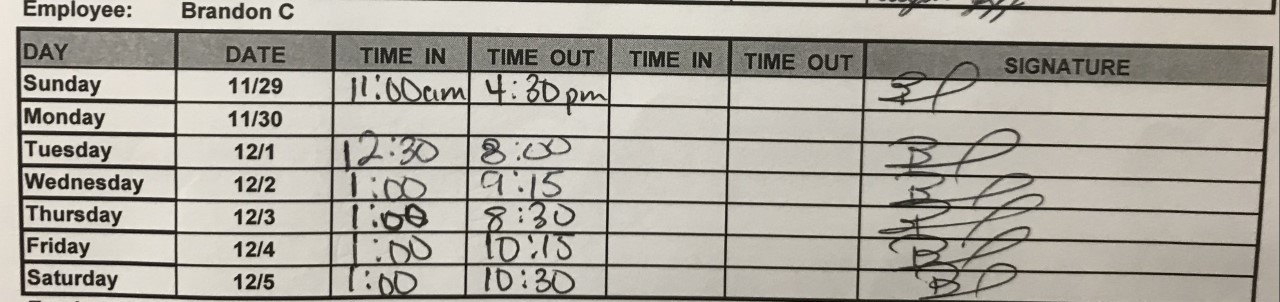 Employee: Brandon C
DAY DATE TIME IN TIME OUT TIME IN TIME OUT SIGNATURE
Sunday 11/29 11:00am 4:30pm
Monday 11/30
Tuesday 12/1 12:30 8:00
Wednesday 12/2 1:00 9:15
Thursday 12/3 1:00 8:30
Friday 12/4 1:00 10:15
Saturday 12/5 1:00 10:30